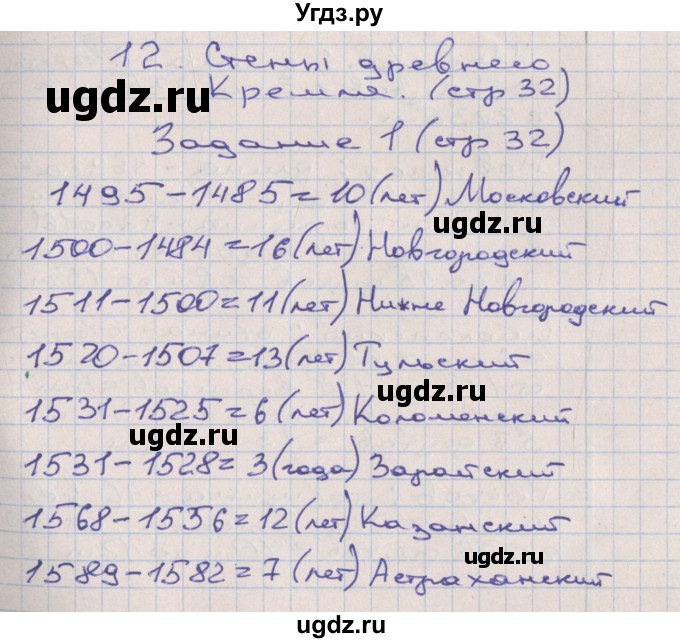 Угдз.ру
12. Стены древнего
Кремля. (стр 32)
ugdz.ru
Задание 1 (стр 32)
1495-1485=10(лет) Московский
ugdz.ru
1500-1484=16(лет) Новгородский
1511-1500=11(лет) Нижне Новгородский
1520-1507=13(лет) Тульский
ugdz.ru
1531-1525=6(лет) Коломенский
ugdz.ru
1531-1528=3(года) Зарайский
1568-1556=12(лет) Казанский
ugdz.ru
1589-1582=7(лет) Астраханский
Угдз.ру